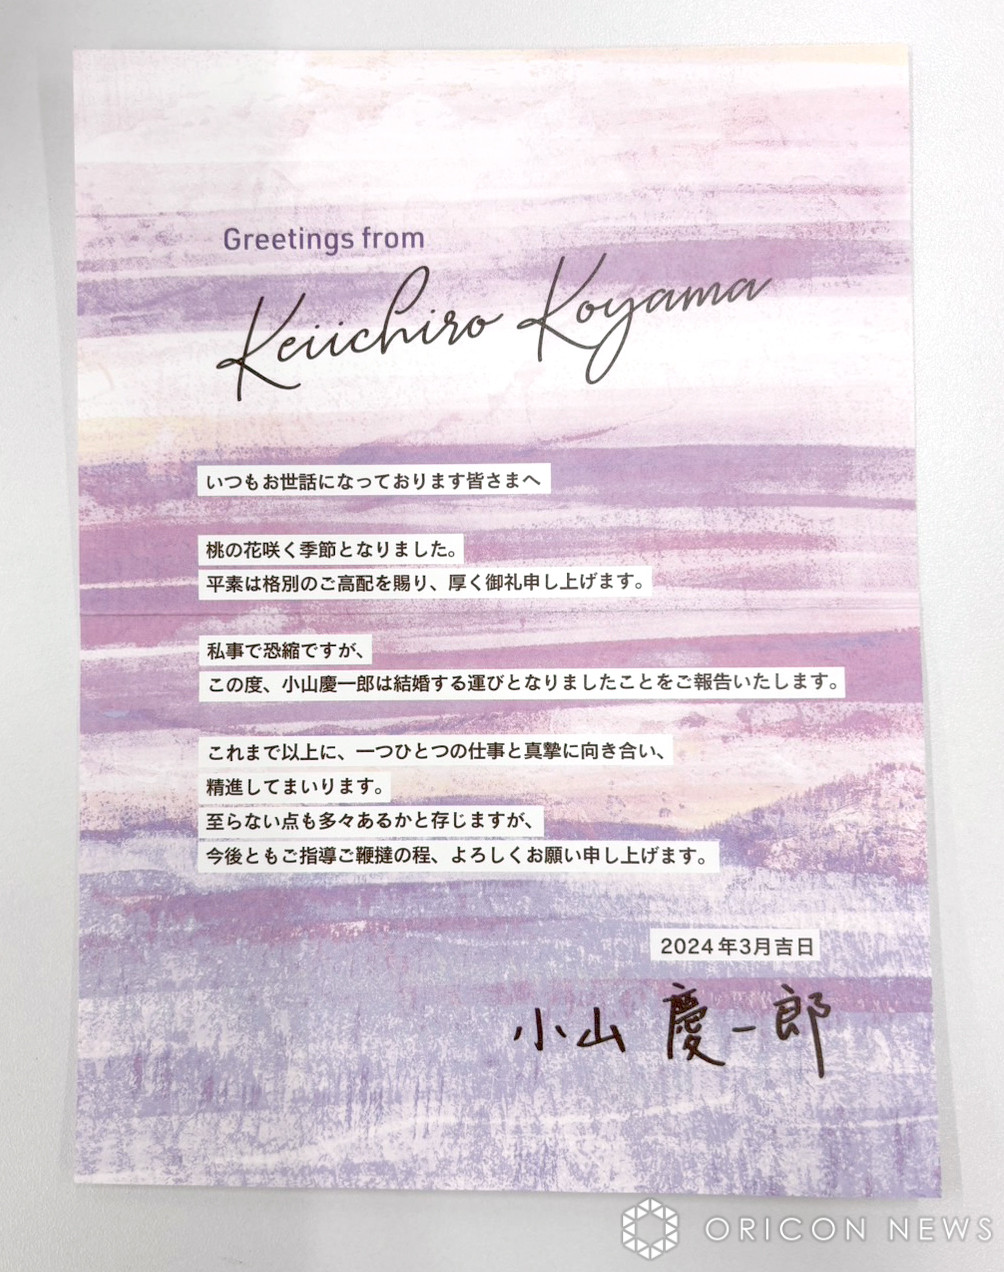 Greetings from
Keiichiro Koyama
いつもお世話になっております皆さまへ
桃の花咲く季節となりました。
平素は格別のご高配を賜り、厚く御礼申し上げます。
私事で恐縮ですが、
この度、小山慶一郎は結婚する運びとなりましたことをご報告いたします。
これまで以上に、一つひとつの仕事と真摯に向き合い、
精進してまいります。
至らない点も多々あるかと存じますが、
今後ともご指導ご鞭撻の程、よろしくお願い申し上げます。
2024年3月吉日
小山 慶一郎
ORICON NEWS